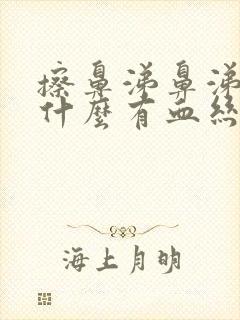 擦鼻涕鼻涕
什麼有血絲
海上月明